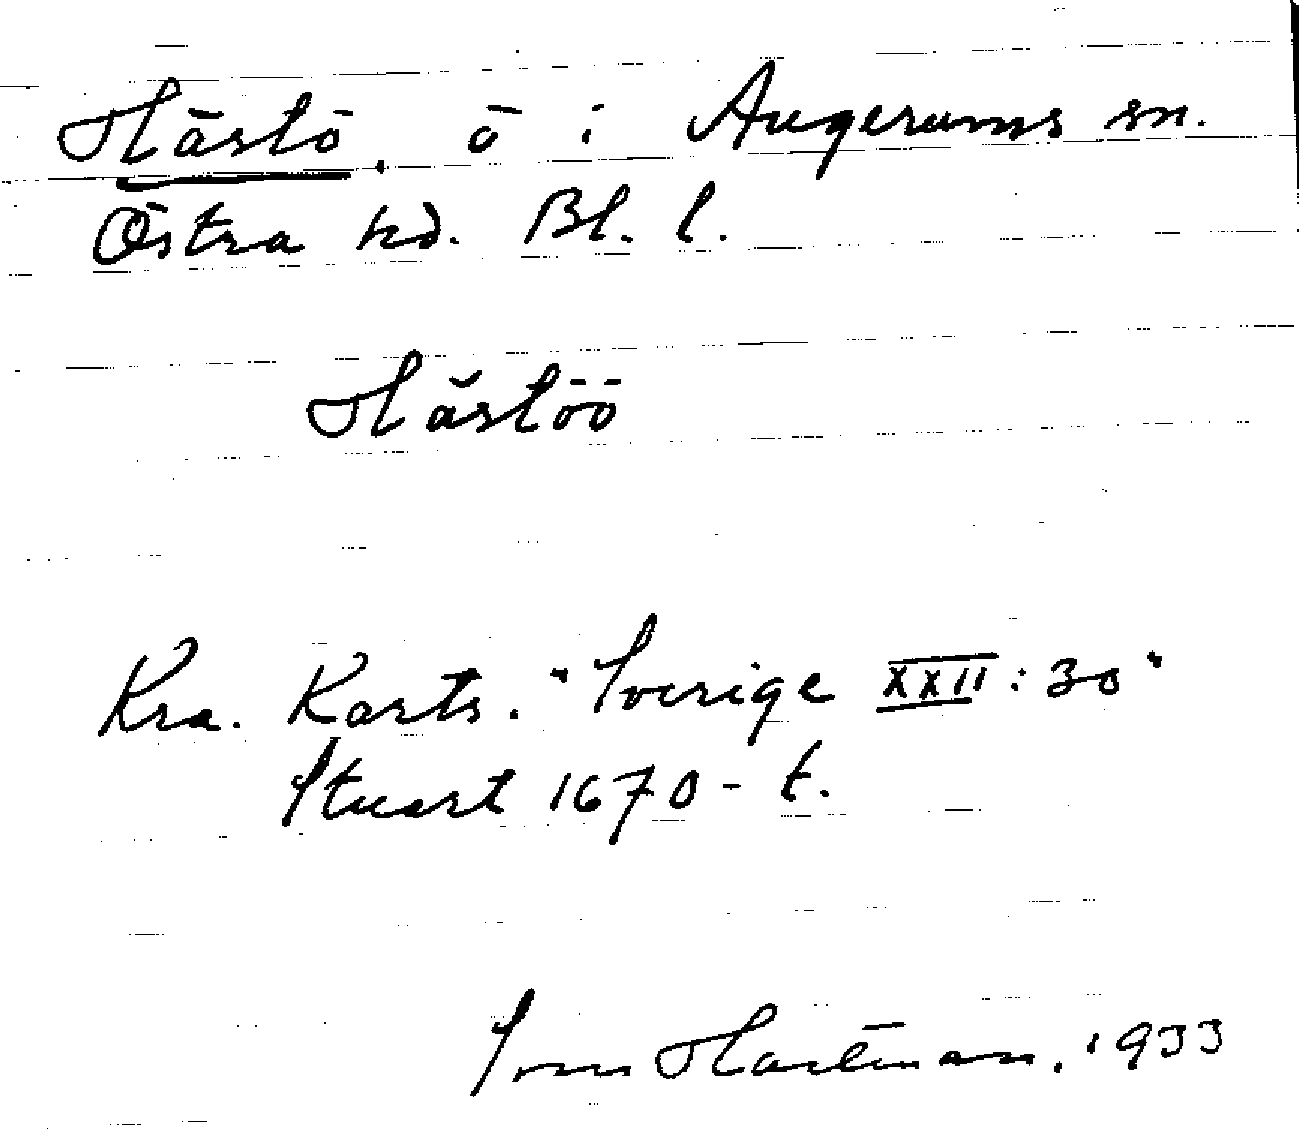 Hästö, ö i Augerums sn.
Östra hd. Bl. l.
Hästöö
Kra. Karts. "Sverige XXII:30"
Stuart 1670-t.
Hartman. 1933